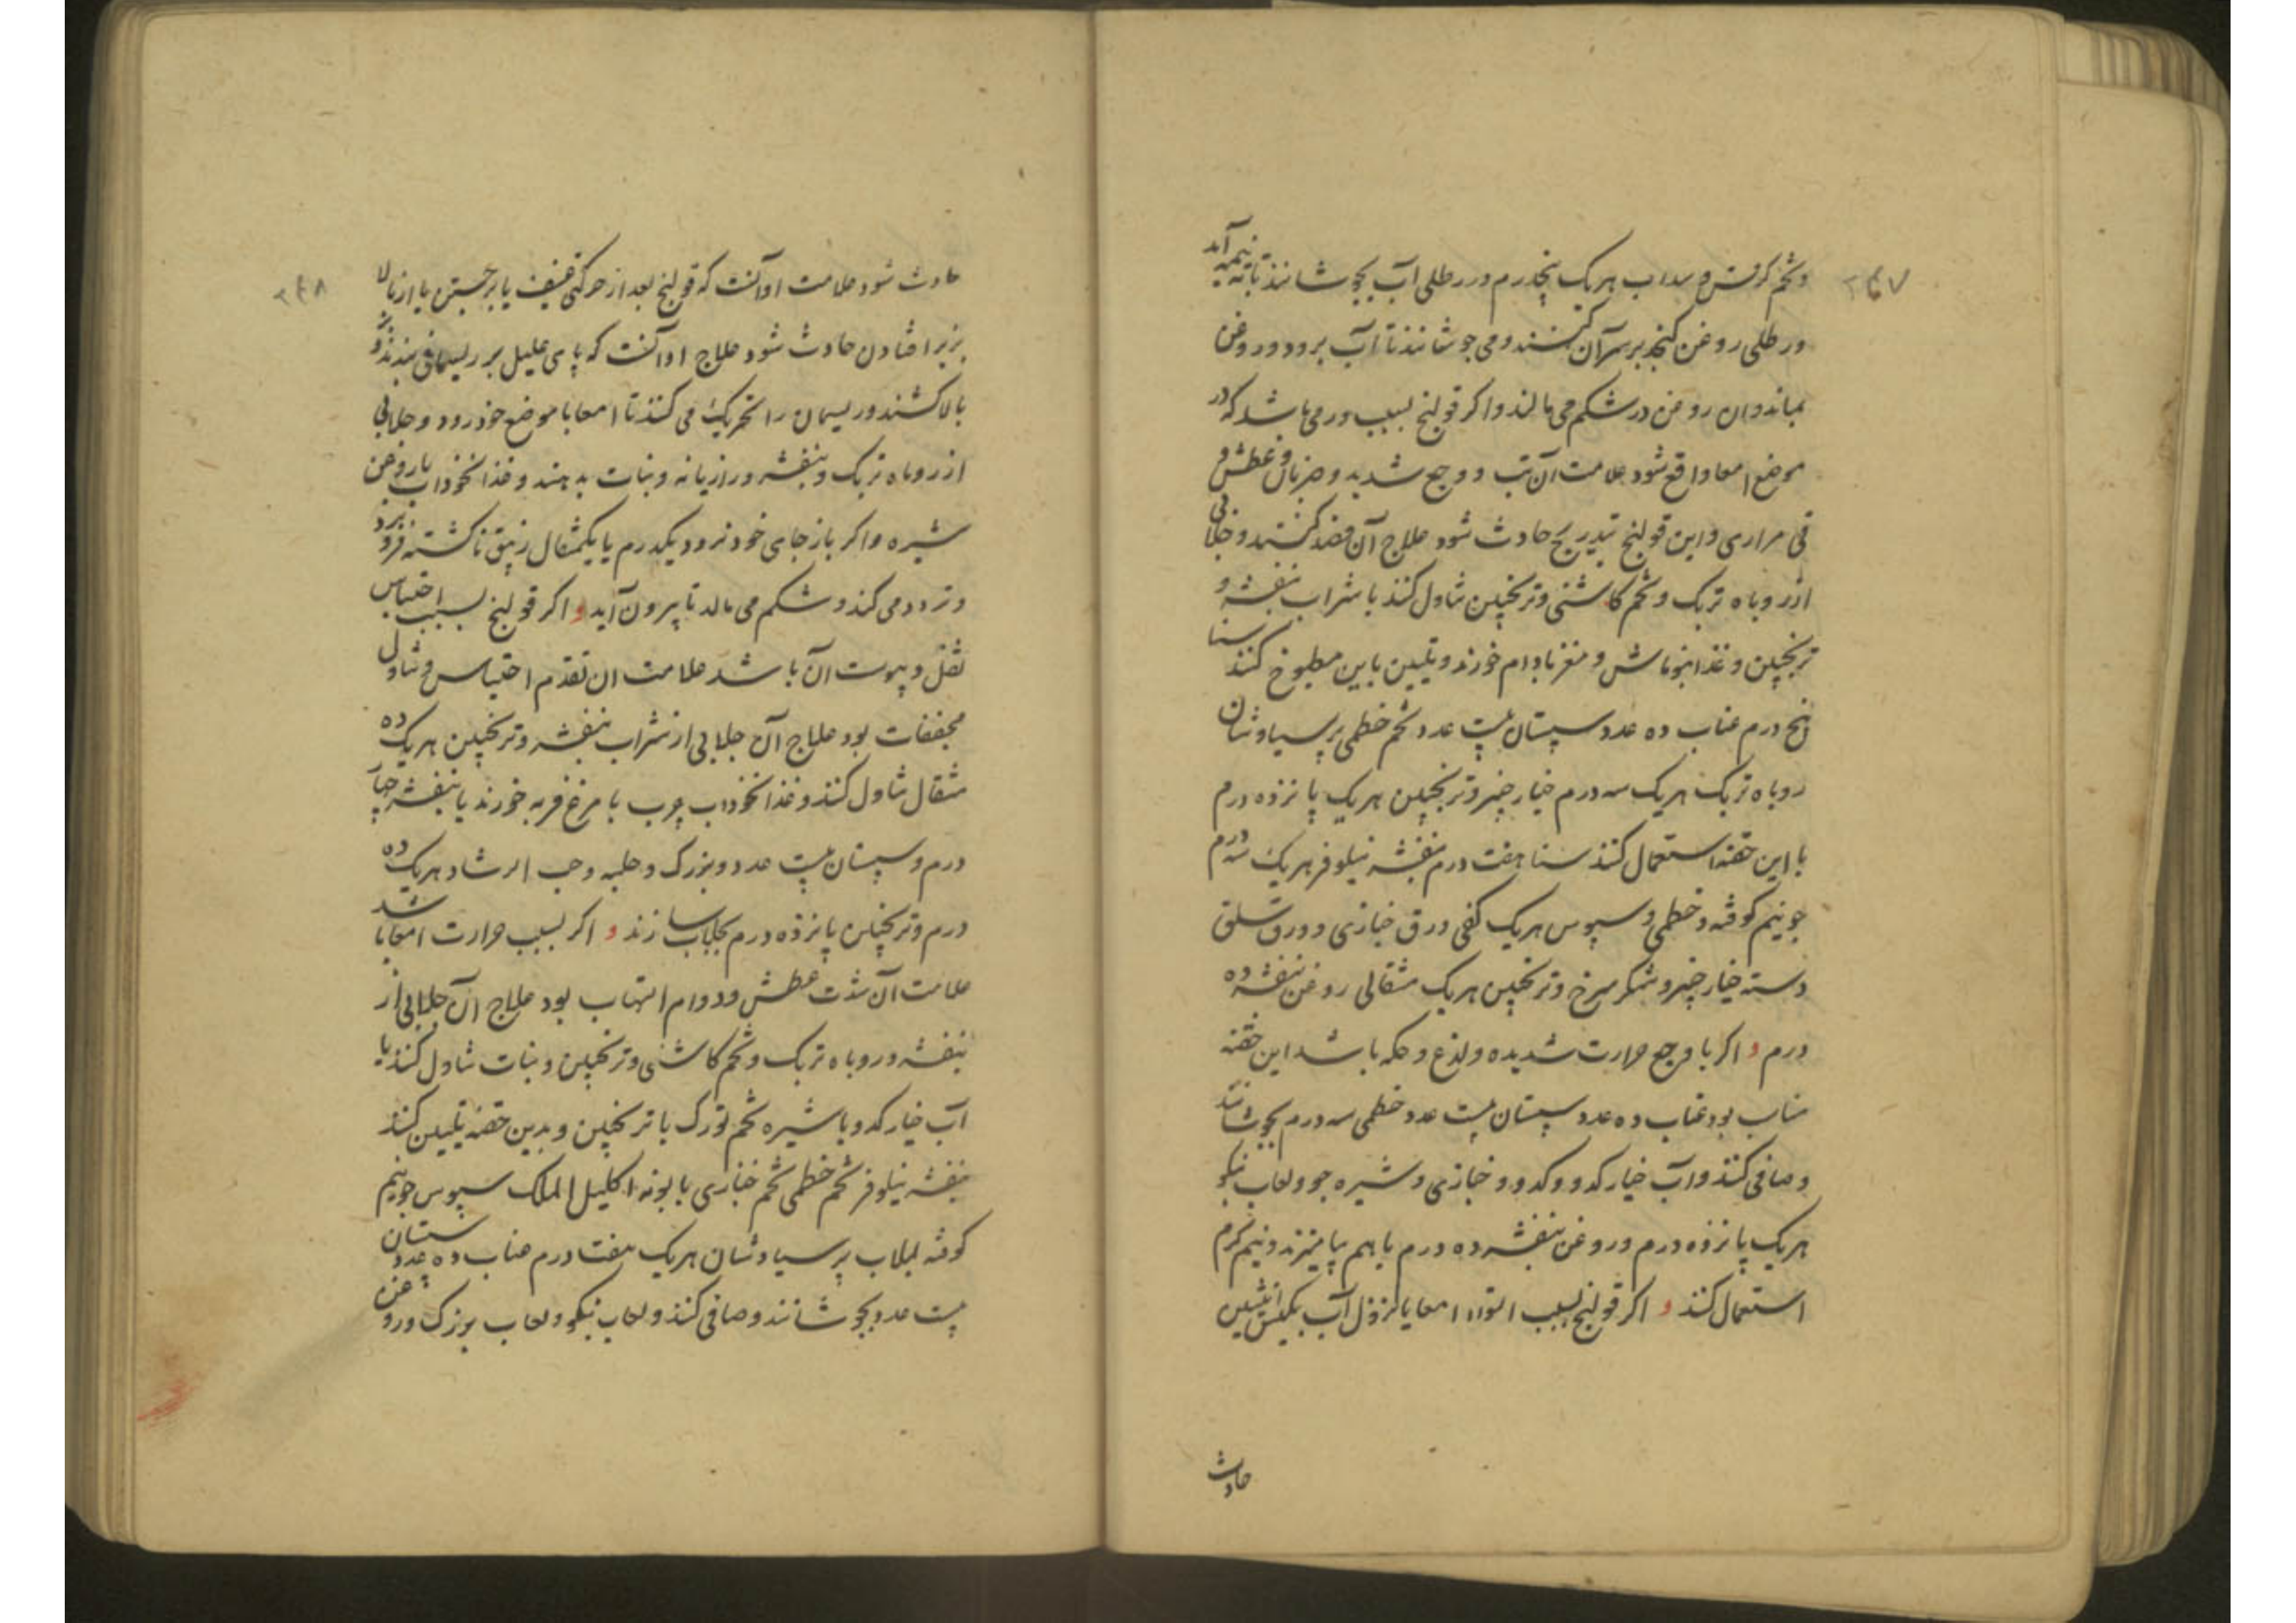 ۲۴۷
وتخم کرفس و سداب هریک پنجدرم در رطلی آب بجوشانند تا به نیمه آید
و رطلی روغن کنجد بر سر آن کنند و می جوشانند تا آب برود و روغن
بماند و ان روغن در شکم می مالند و اکر قولنج بسبب ورمی باشد که در
موضع امعا واقع شود علامت آن تب و وجع شدید و ضربان و عطش و
قی مراری و این قولنج بتدریج حادث شود علاج آن فصد کنند و جلابی
از روباه تربک و تخم کاشنی و ترنجبین تناول کنند با شراب بنفشه و
ترنجبین و غذا بنوماش و مغز بادام خورند و تلیین باین مطبوخ کنند سنا
پنج درم عناب ده عدد سپستان بیست عدد تخم خطمی پرسیاوشان
روباه تربک هریک سه درم خیارچنبر و ترنجبین هریک پانزده درم
با این حقنه استعمال کنند سنا هفت درم بنفشه نیلوفر هریک سه درم
جو نیم کوفته و خطمی و سپوس هریک کفی ورق خبازی و ورق سلق
دسته خیارچنبر و شکر سرخ و ترنجبین هریک مثقالی روغن بنفشه ده
درم و اکر با وجع حرارت شدیده و لذع و حکه باشد این حقنه
مناسب بود عناب ده عدد سپستان بیست عدد خطمی سه درم بجوشانند
و صافی کنند و آب خیار کدو و کدو و خبازی و شیره جو و لعاب نیکو
هریک پانزده درم و روغن بنفشه ده درم با هم بیامیزند و نیم کرم
استعمال کنند و اکر قولنج بسبب التواء امعا یا نزول آب بکیس انثیین
حادث
۲۴۸
حادث شود علامت او آنست که قولنج بعد از حرکتی عنیف یا برجستن یا از بالا
بزیر افتادن حادث شود علاج او آنست که پای علیل بر ریسمانی بندند و
بالا کشند و ریسمان را تحریک می کنند تا امعا با موضع خود رود و جلابی
از روباه تربک و بنفشه و رازیانه و نبات بدهند و غذا نخوداب با روغن
شیره و اکر باز جای خود نرود یکدرم یا یکمثقال زیبق ناکشته فرو برد
و تردد می کند و شکم می مالد تا بیرون آید و اکر قولنج بسبب احتباس
ثفل و یبوست آن باشد علامت ان تقدم احتباس و تناول
مجففات بود علاج آن جلابی از شراب بنفشه و ترنجبین هریک ده
مثقال تناول کنند و غذا نخوداب چرب با مرغ فربه خورند یا بنفشه چهار
درم و سپستان بیست عدد و بزرک و حلبه و حب الرشاد هریک ده
درم و ترنجبین پانزده درم بجلاب سازند و اکر بسبب حرارت امعا باشد
علامت آن شدت عطش و دوام التهاب بود علاج آن جلابی از
بنفشه و روباه تربک و تخم کاشنی و ترنجبین و نبات تناول کنند یا
آب خیار کدو با شیره تخم تورک با ترنجبین و بدین حقنه تلیین کنند
بنفشه نیلوفر تخم خطمی تخم خبازی بابونه اکلیل الملک سپوس جو نیم
کوفته لبلاب پرسیاوشان هریک هفت درم عناب ده عدد سپستان
بیست عدد بجوشانند و صافی کنند و لعاب نیکو و لعاب بزرک و روغن